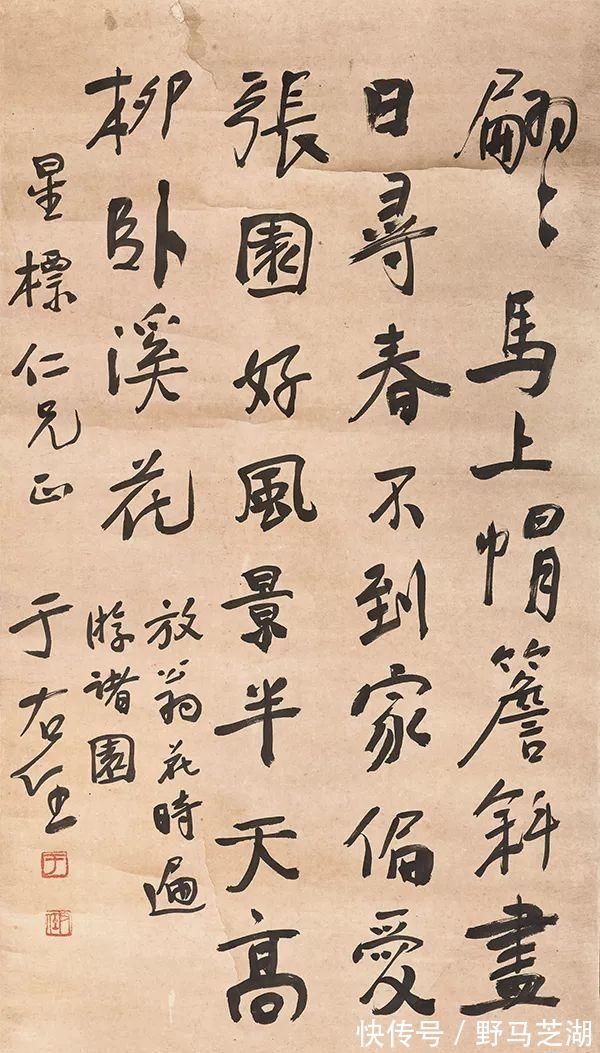 翩〻馬上帽簷斜盡
日尋春不到家偏愛
張園好風景半天高
柳卧溪花
放翁花時遍
游諸園
星標仁兄正
于右任
快传号 / 野马芝湖